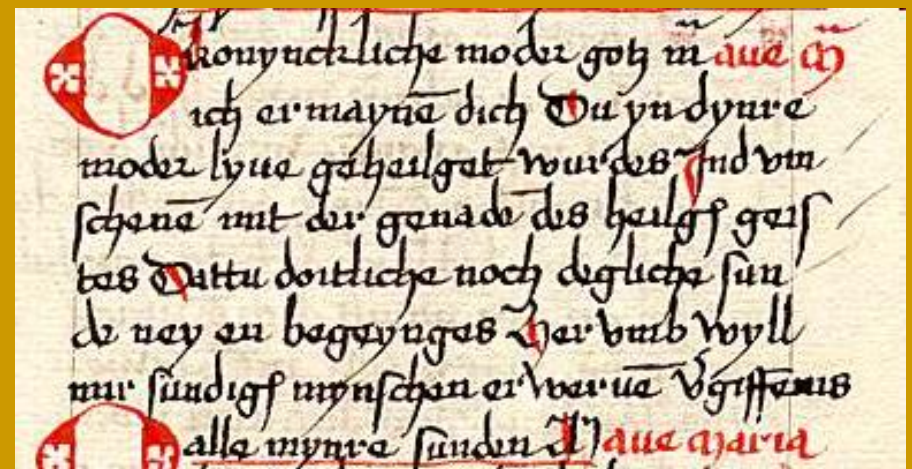 O konynckliche moder gotz m̄ aue m̄
ich ermaynē dich Du yn dynre
moder lyue geheilget wurdes Ind vm
schenē mit der genadē des heilgẜ geis
tes Dattu doitliche noch degliche sun
de ney en begeynges Her vmb wyll
mir sündigẜ mynschen erweruē v̄giffenis
alle mynre sunden Aue maria